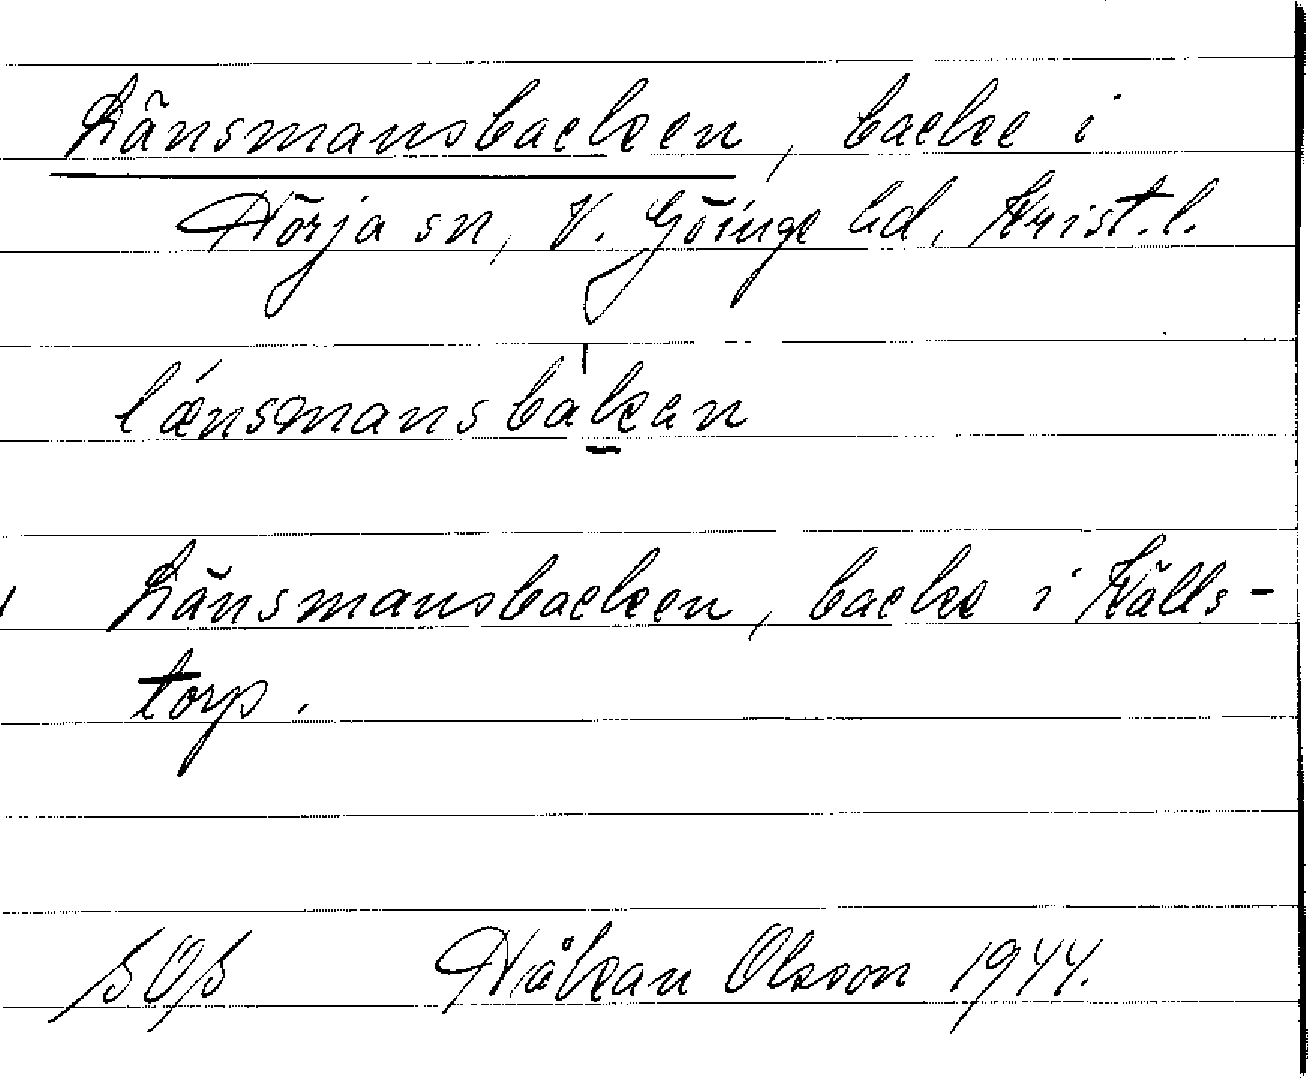 Länsmansbacken, backe i
Hörja sn, V. Göinge hd, Krist. l.
lǽnsmansbakan
Länsmansbacken, backe i Källs-
torp.
Håkan Olsson 1944.